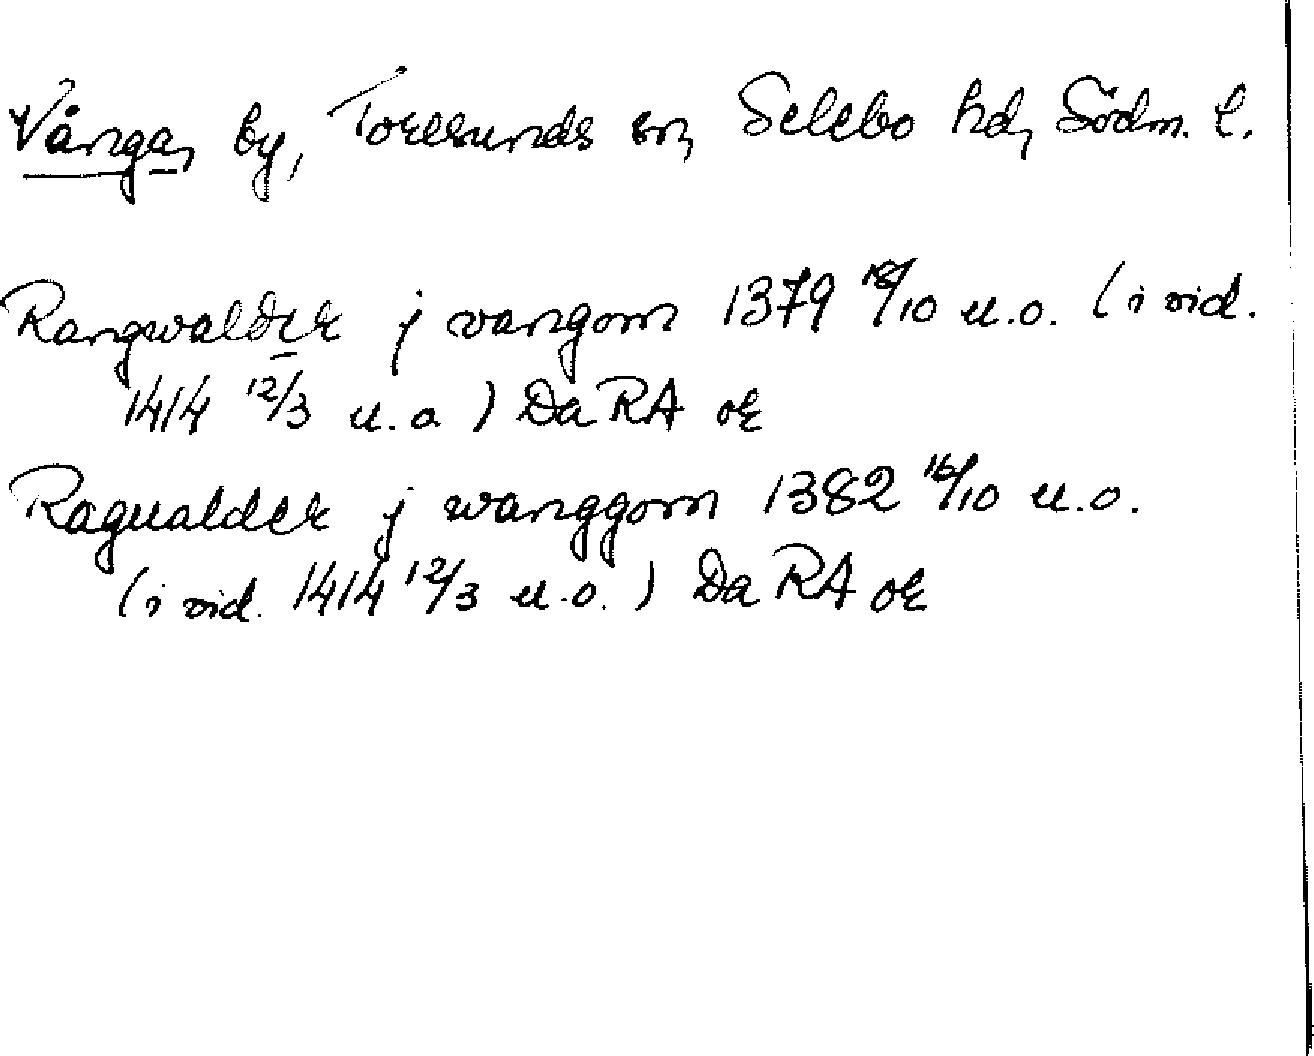 Vånga, by, Toresunds sn, Selebo hd, Södm. l.
Rangwalder j wangom 1379 18/10 u.o. (i vid.
1414 12/3 u.o.) Da RA or
Ragualder j wanggom 1382 16/10 u.o.
(i vid. 1414 12/3 u.o.) Da RA or